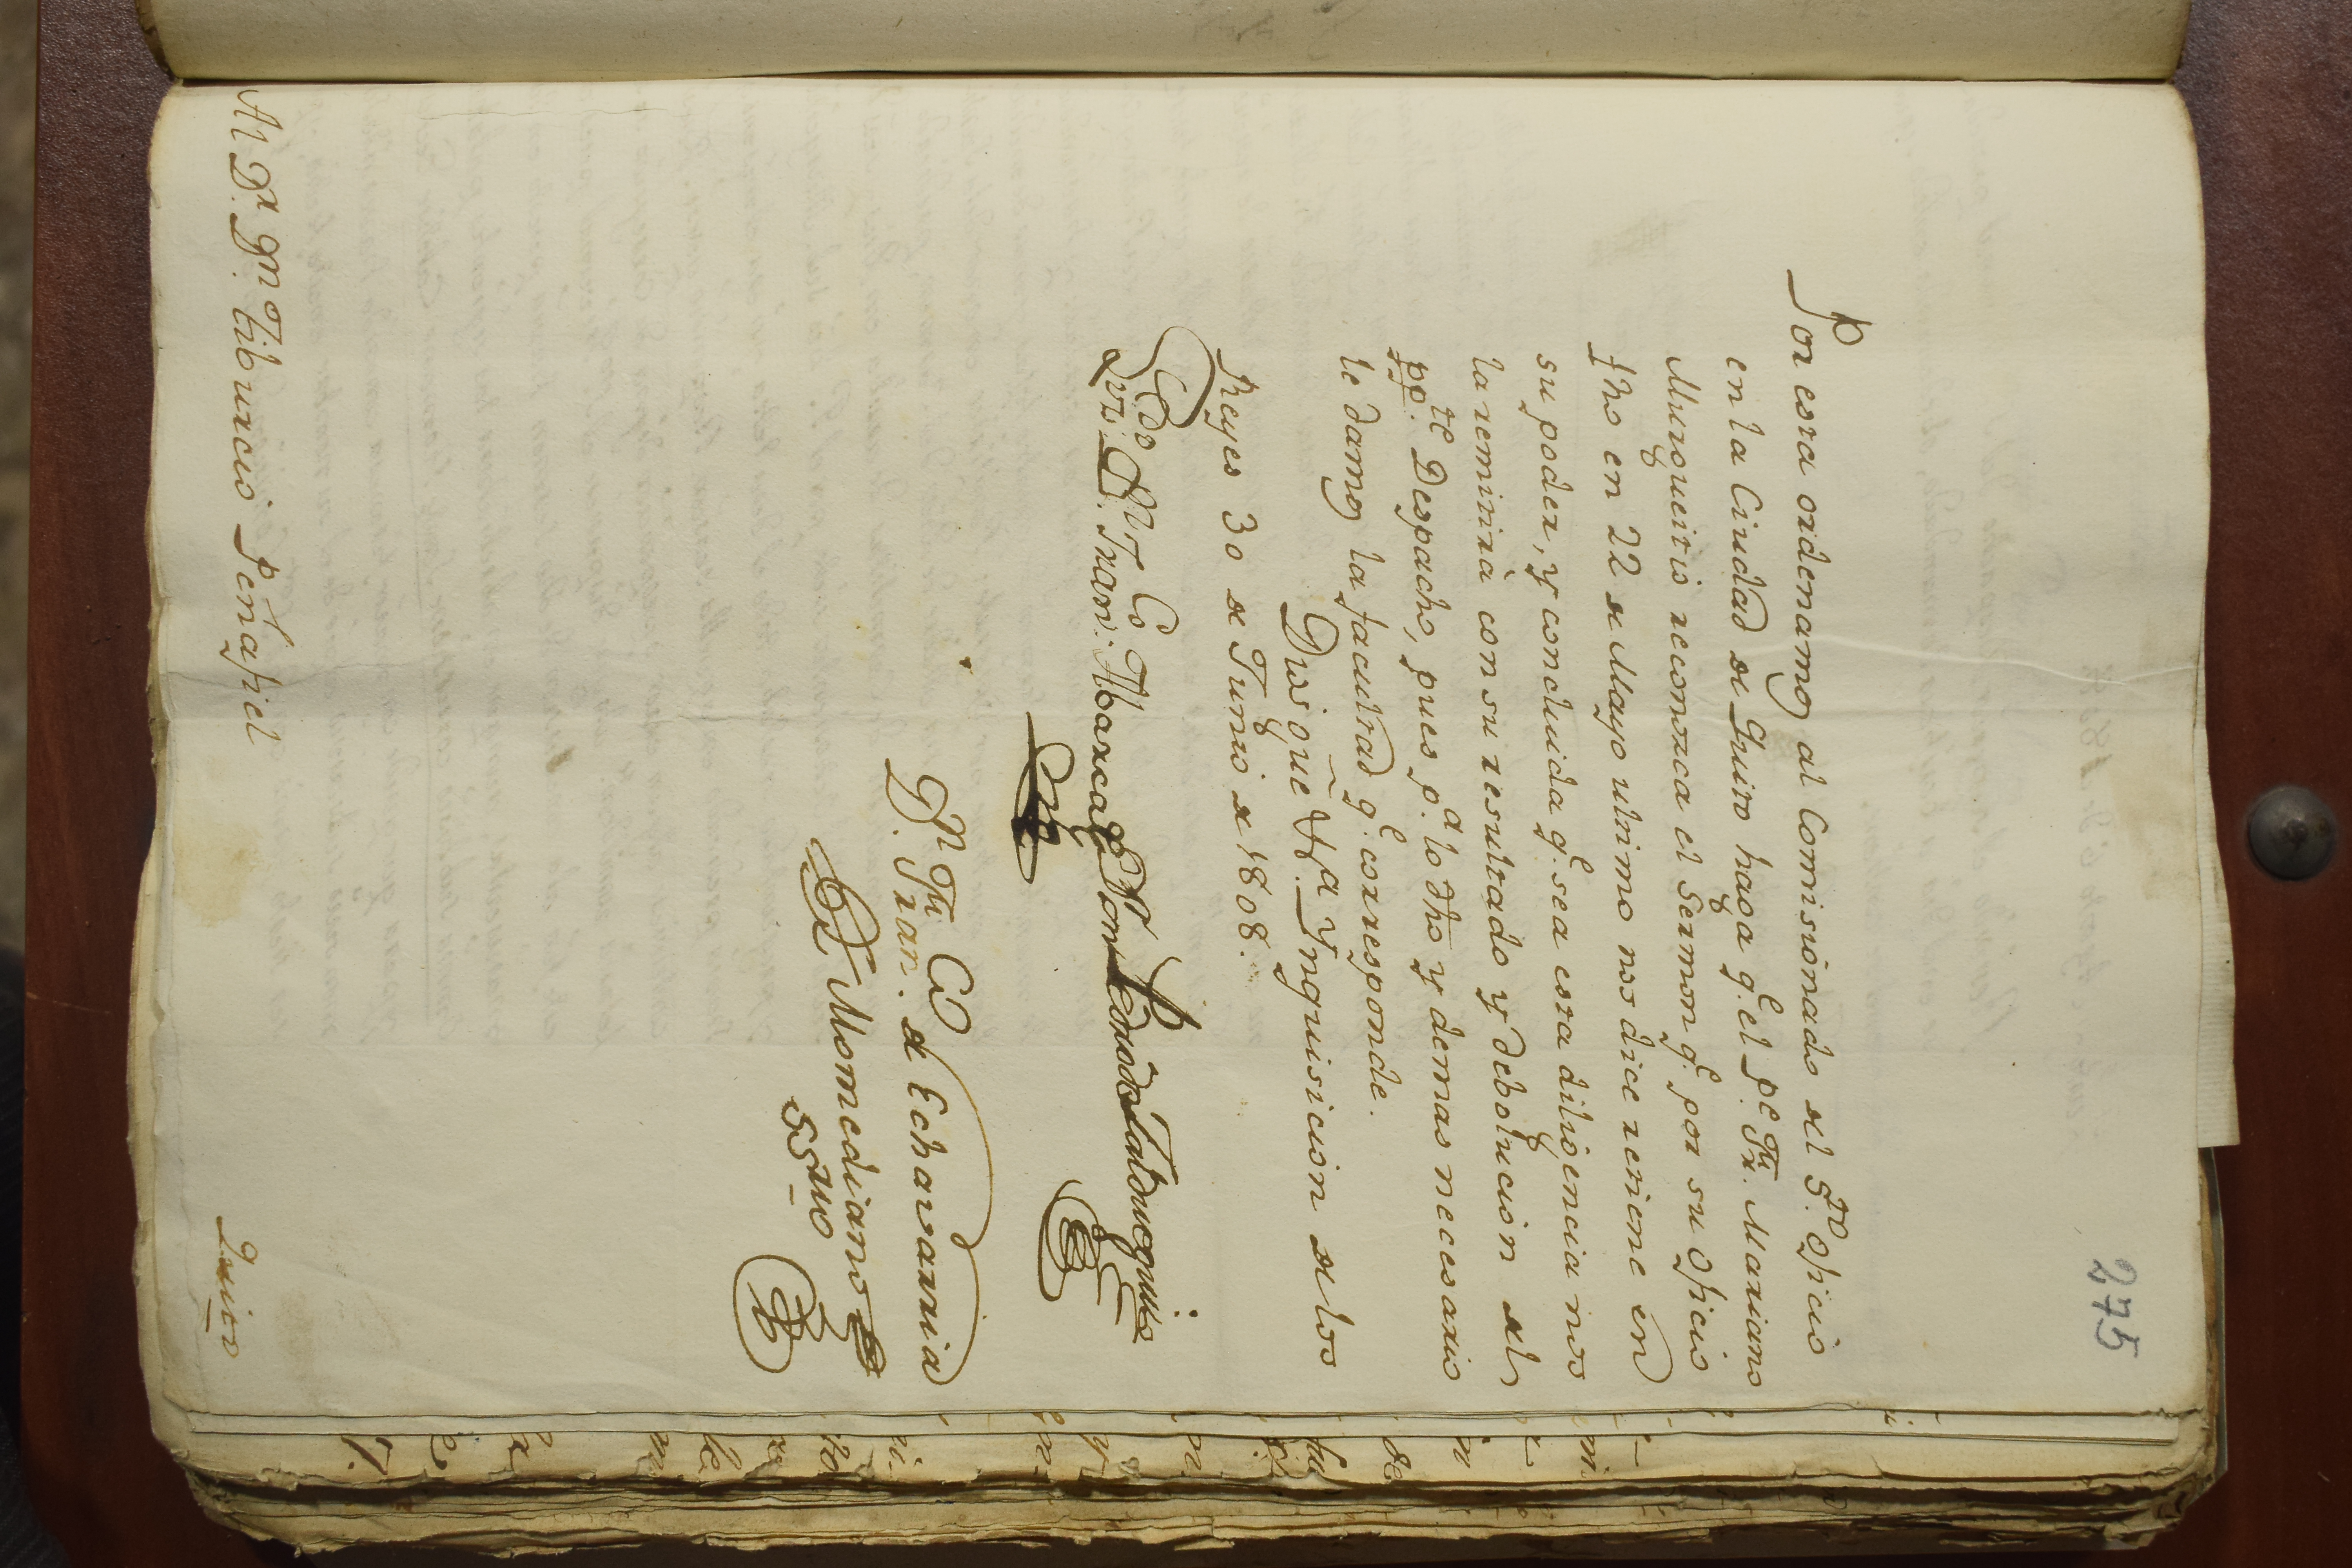 275
Por esta ordenamos al Comisionado del S.to Oficio
en la Ciudad de Quito haga q.e el P.e Fr. Mariano
Murgueitio reconozca el Sermon q.e por su Oficio
fho en 22 de Mayo ultimo nos dice retiene en
su poder, y concluida q.e sea esta diligencia nos
la remitirá con su resultado y debolucion del
põ.te Despacho, pues p.a lo dho y demas necesario
le damos la facultad q.e corresponde.
Dios gũe Vd.a Ynquisicion de los
Reyes 30 de Junio de 1808.
D.n Fran.co Abarca
D.n Fran.co de Echavarria
Momediano
SSrio
Al D.r D.n Tiburcio Peñafiel
Quito